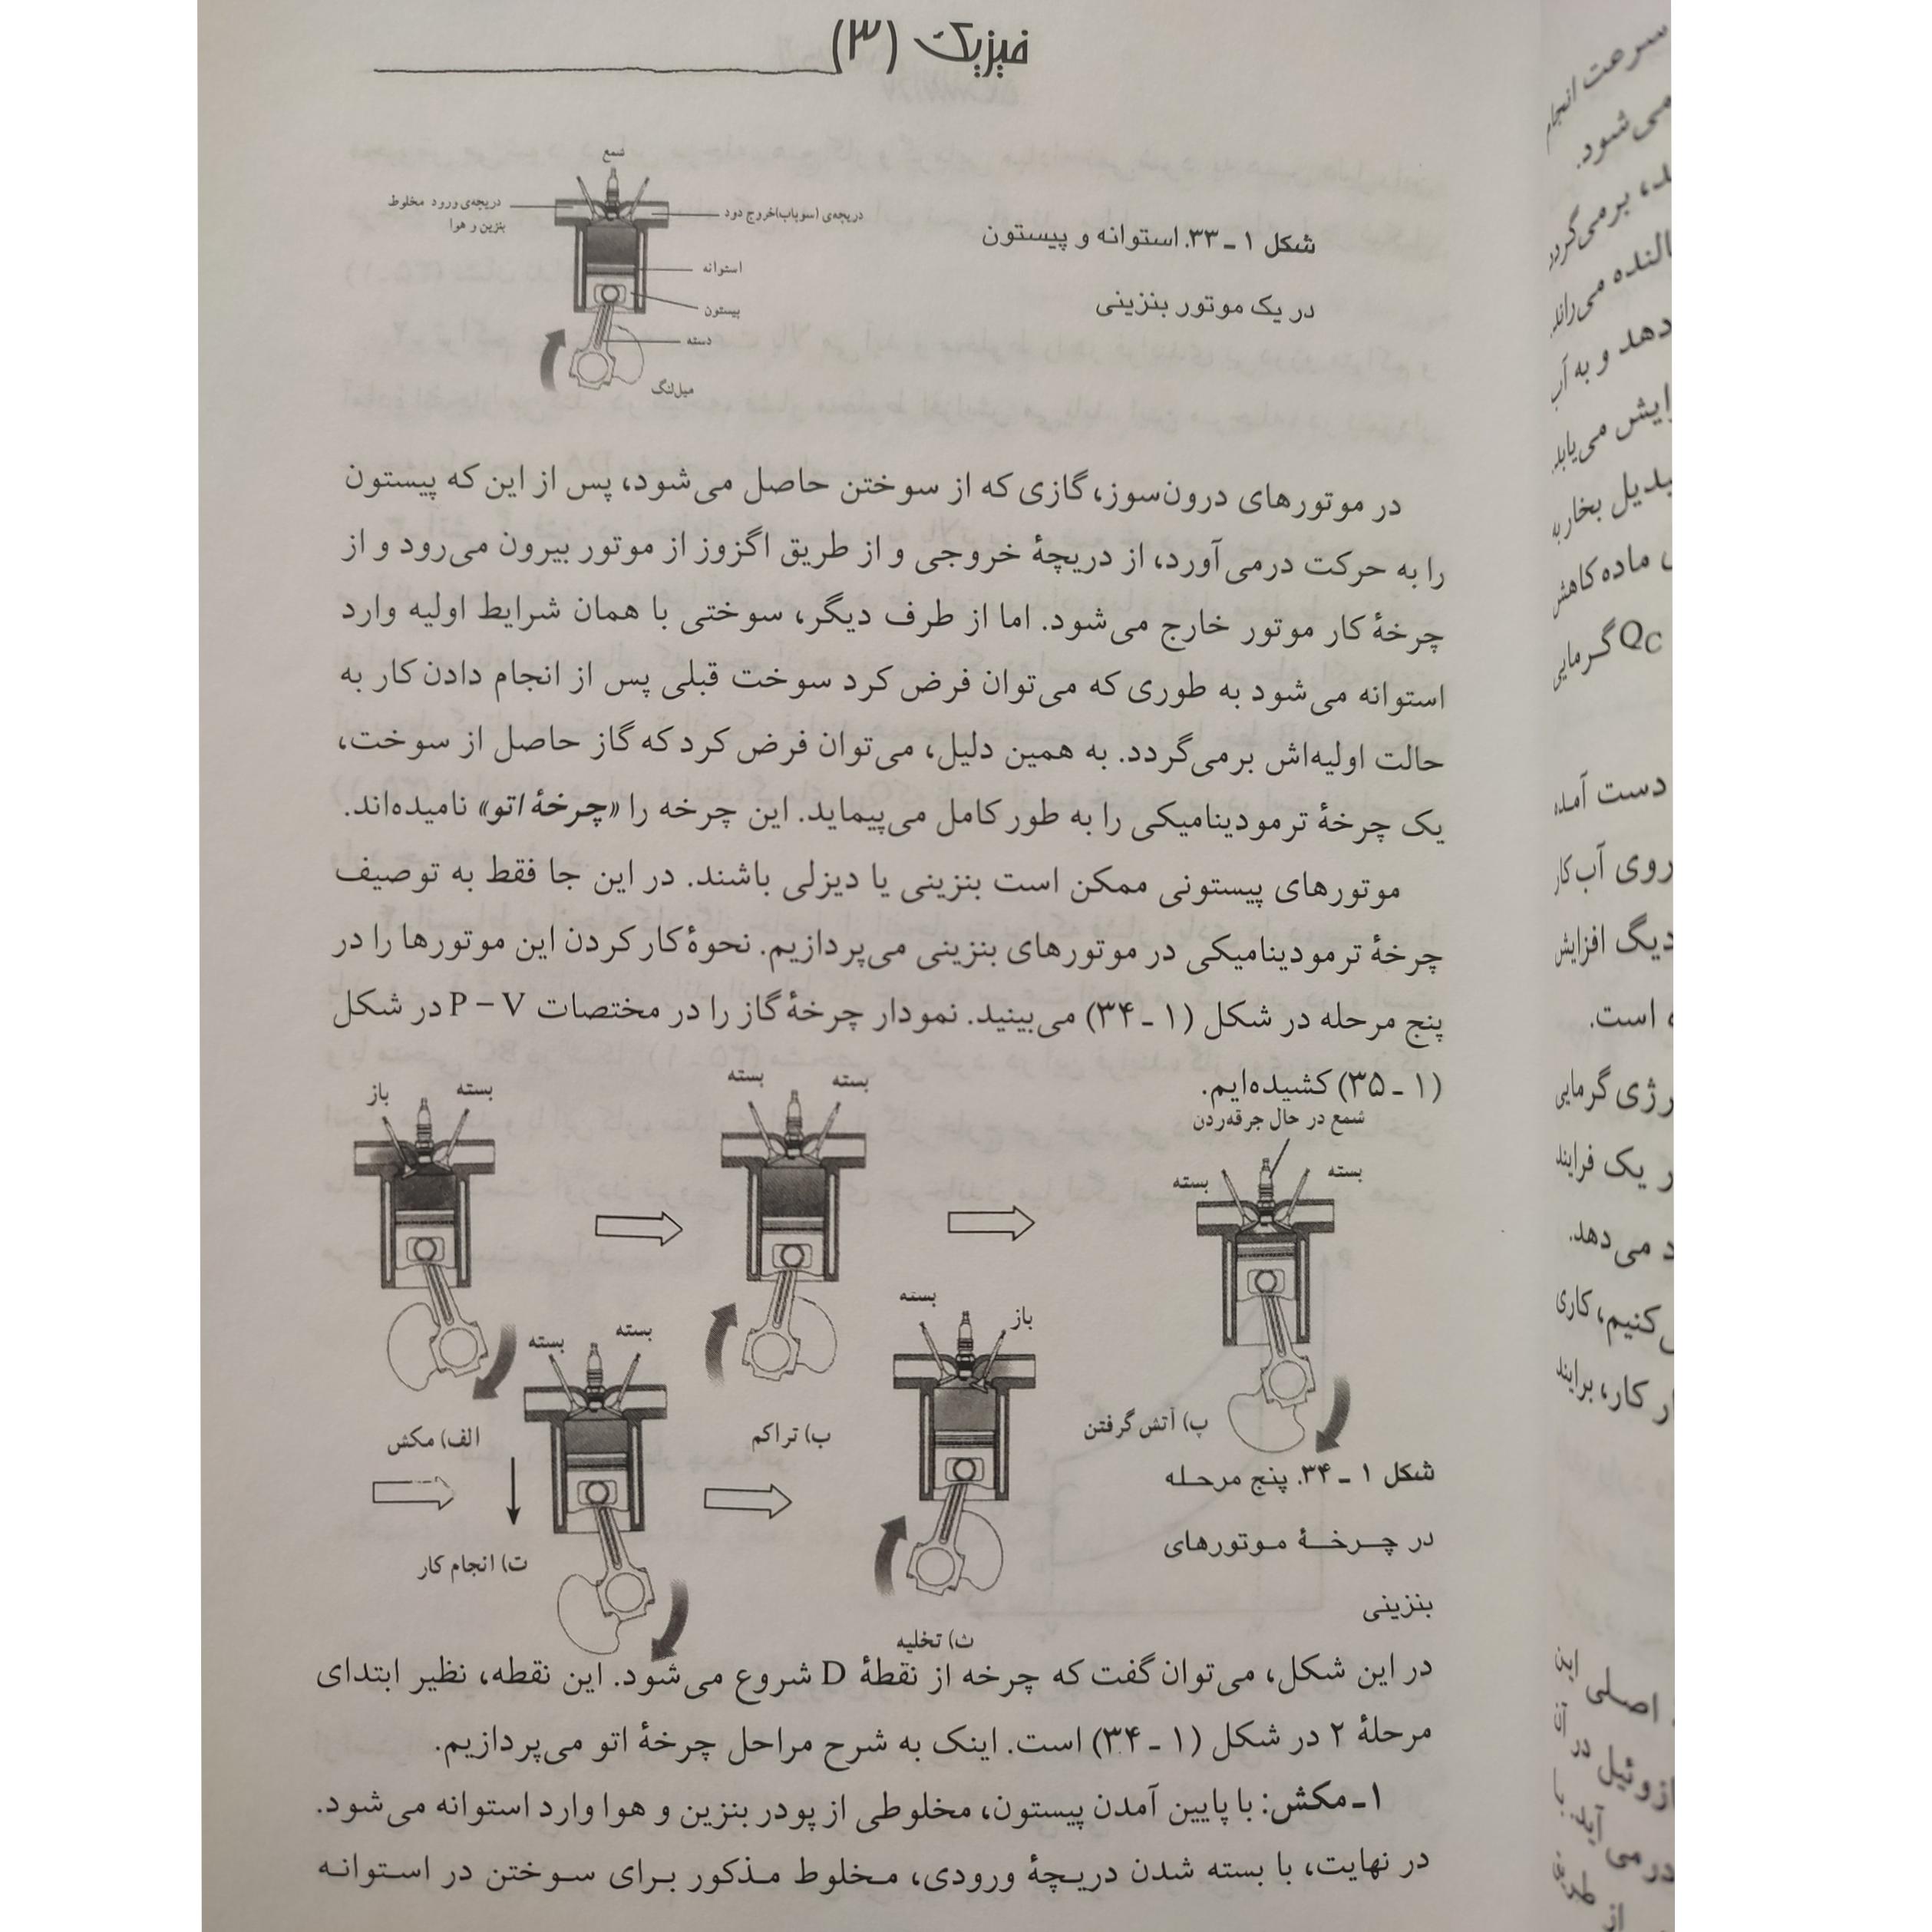 فیزیک (۳)
شمع
دریچه‌ی ورود مخلوط
بنزین و هوا
دریچه‌ی (سوپاپ) خروج دود
استوانه
پیستون
دسته
میل‌لنگ
شکل ۱ ـ ۳۳. استوانه و پیستون
در یک موتور بنزینی
در موتورهای درون‌سوز، گازی که از سوختن حاصل می‌شود، پس از این که پیستون
را به حرکت درمی‌آورد، از دریچهٔ خروجی و از طریق اگزوز از موتور بیرون می‌رود و از
چرخهٔ کار موتور خارج می‌شود. اما از طرف دیگر، سوختی با همان شرایط اولیه وارد
استوانه می‌شود به طوری که می‌توان فرض کرد سوخت قبلی پس از انجام دادن کار به
حالت اولیه‌اش برمی‌گردد. به همین دلیل، می‌توان فرض کرد که گاز حاصل از سوخت،
یک چرخهٔ ترمودینامیکی را به طور کامل می‌پیماید. این چرخه را «چرخهٔ اتو» نامیده‌اند.
موتورهای پیستونی ممکن است بنزینی یا دیزلی باشند. در این جا فقط به توصیف
چرخهٔ ترمودینامیکی در موتورهای بنزینی می‌پردازیم. نحوهٔ کار کردن این موتورها را در
پنج مرحله در شکل (۱ ـ ۳۴) می‌بینید. نمودار چرخهٔ گاز را در مختصات P – V در شکل
(۱ ـ ۳۵) کشیده‌ایم.
باز
بسته
بسته
بسته
شمع در حال جرقه‌زدن
بسته
بسته
الف) مکش
ب) تراکم
پ) آتش گرفتن
بسته
بسته
بسته
باز
ت) انجام کار
ث) تخلیه
شکل ۱ ـ ۳۴. پنج مرحله
در چرخهٔ موتورهای
بنزینی
در این شکل، می‌توان گفت که چرخه از نقطهٔ D شروع می‌شود. این نقطه، نظیر ابتدای
مرحلهٔ ۲ در شکل (۱ ـ ۳۴) است. اینک به شرح مراحل چرخهٔ اتو می‌پردازیم.
۱ـ مکش: با پایین آمدن پیستون، مخلوطی از پودر بنزین و هوا وارد استوانه می‌شود.
در نهایت، با بسته شدن دریچهٔ ورودی، مخلوط مذکور برای سوختن در استوانه
سرعت انجام
می‌شود.
برمی‌گردد
می‌راند
دهد و به آب
می‌یابد
تبدیل بخار به
ماده کاهش
QC گرمایی
دست آمده
روی آب کار
دیگ افزایش
است.
گرمایی
یک فرایند
می‌دهد.
کنیم، کاری
کار، برایند
اصلی